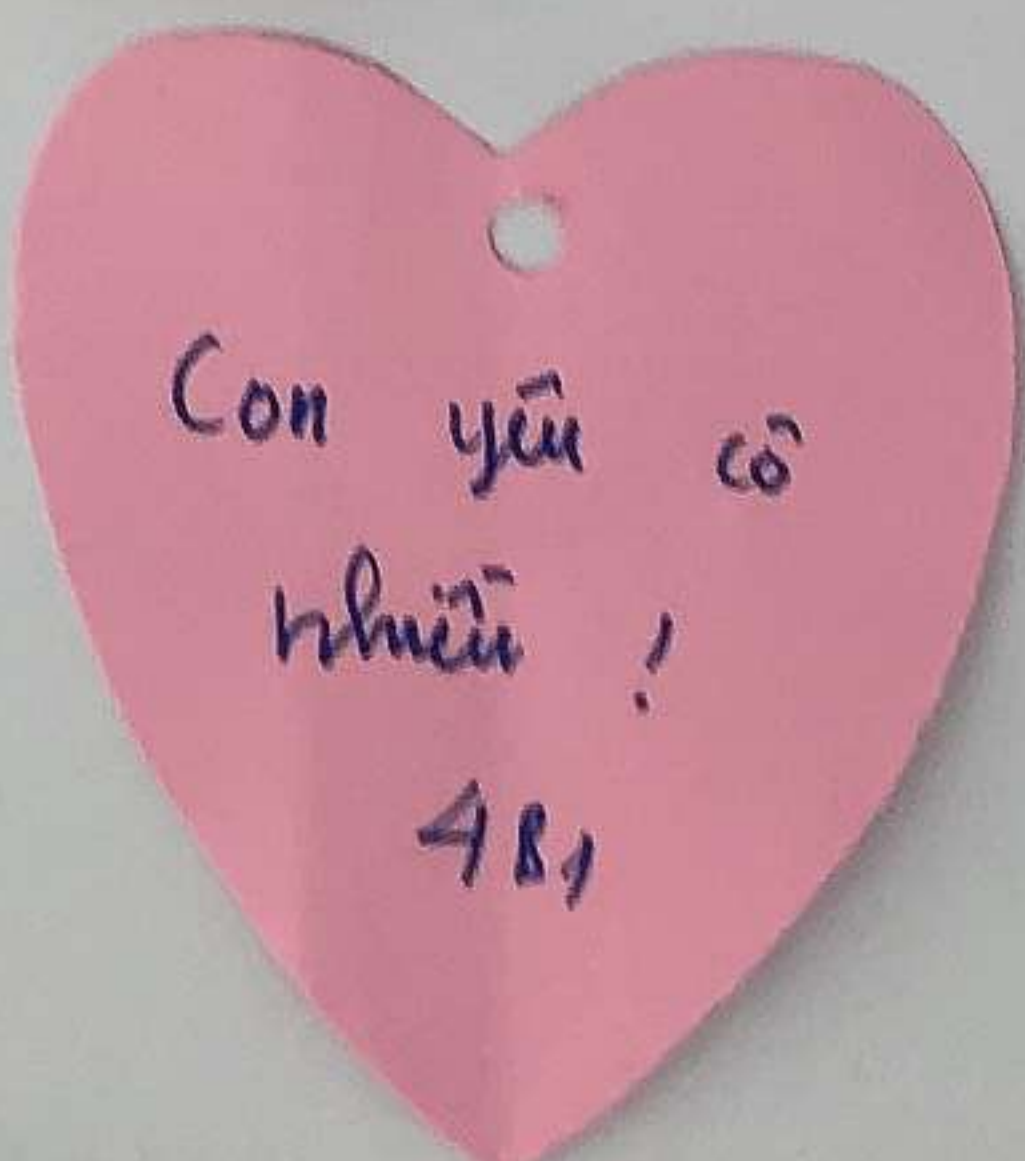 Con yêu cô
nhiều !
4B1